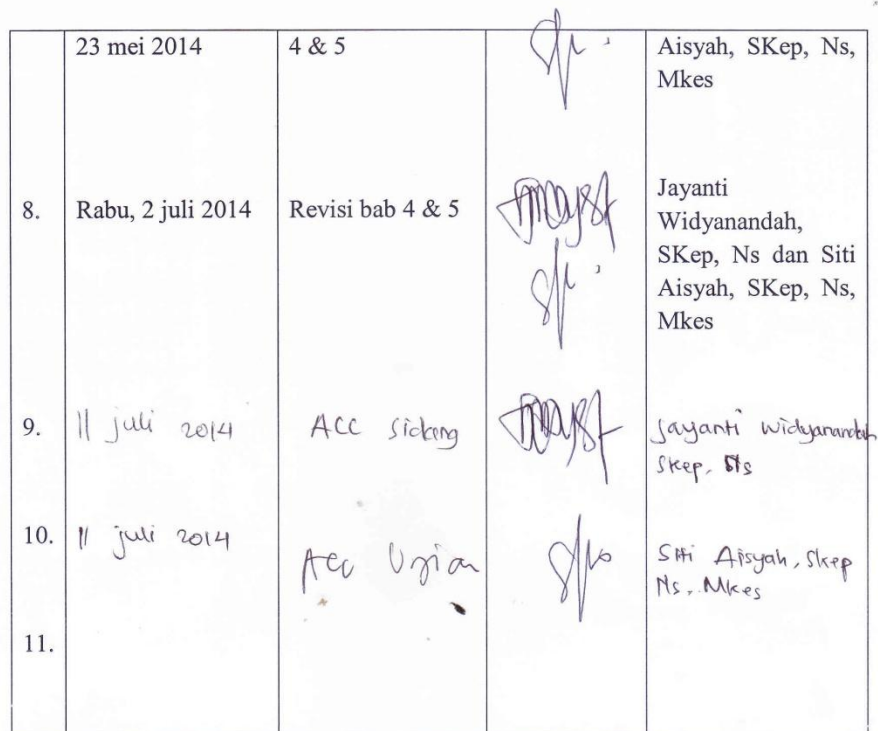 23 mei 2014 4 & 5 Aisyah, SKep, Ns,
Mkes
8. Rabu, 2 juli 2014 Revisi bab 4 & 5 Jayanti
Widyanandah,
SKep, Ns dan Siti
Aisyah, SKep, Ns,
Mkes
9. 11 juli 2014 ACC Sidang Jayanti Widyanandah
Skep, Ns
10. 11 juli 2014 Acc Ujian Siti Aisyah, Skep
Ns, Mkes
11.